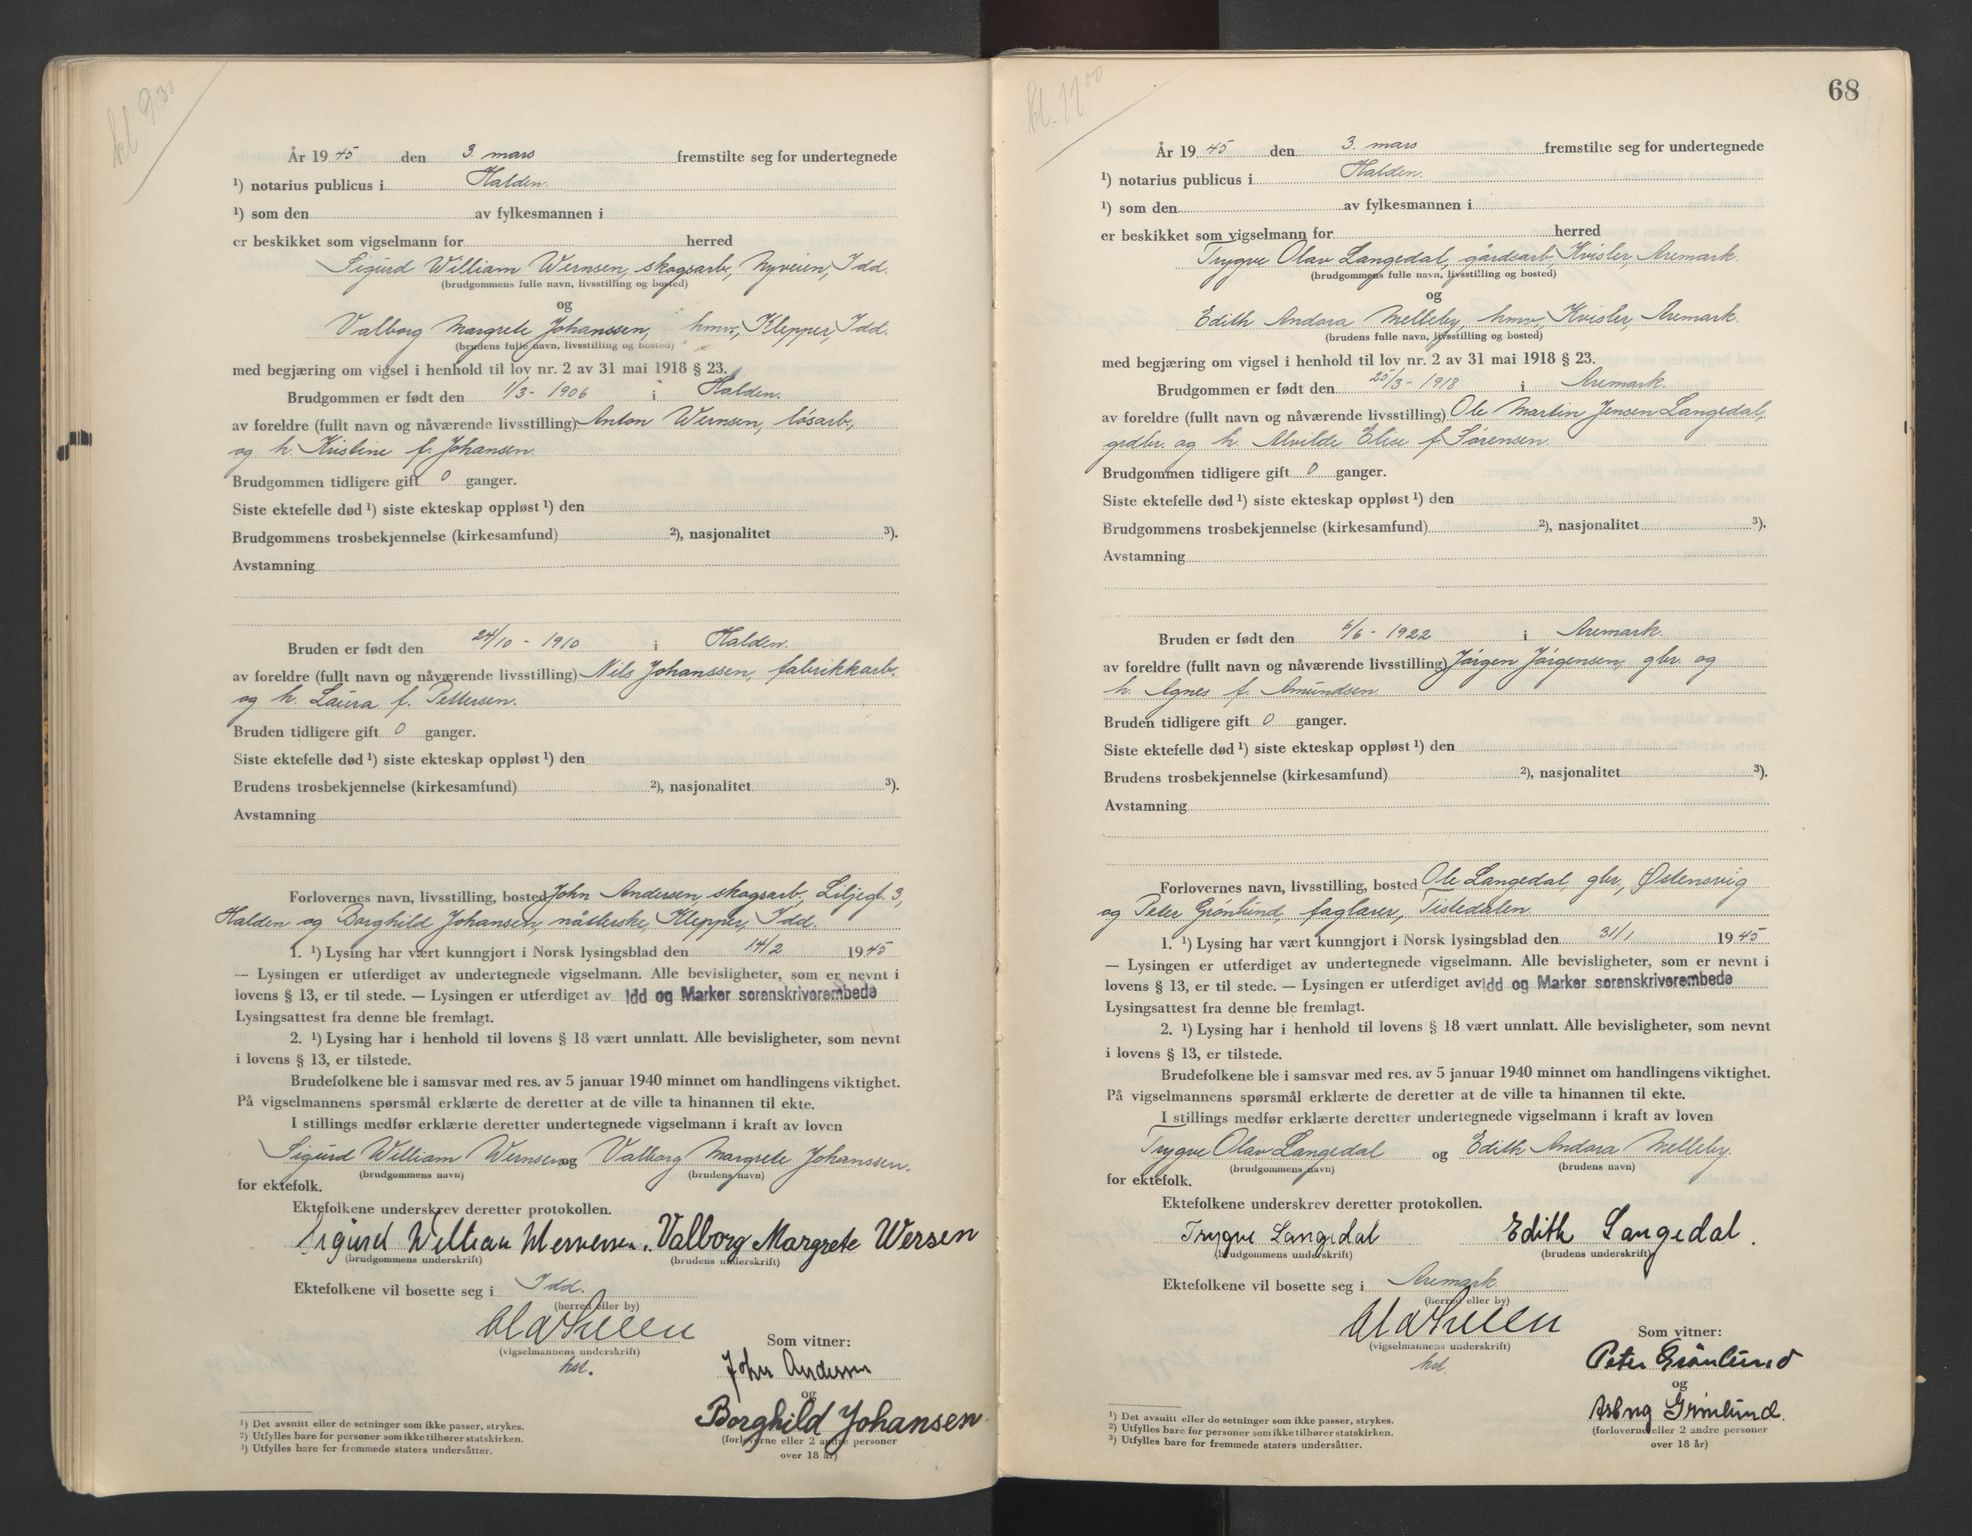 kl 9.30
År 1945 den 3. mars fremstilte seg for undertegnede
¹) notarius publicus i Halden.
¹) som den av fylkesmannen i
er beskikket som vigselmann for herred
Sigurd William Wernsen, skogsarb, Nyveien, Idd.
(brudgommens fulle navn, livsstilling og bosted)
og
Valborg Margrete Johanssen, hmv., Klepper, Idd.
(brudens fulle navn, livsstilling og bosted)
med begjæring om vigsel i henhold til lov nr. 2 av 31 mai 1918 § 23.
Brudgommen er født den 1/3 - 1906 i Halden.
av foreldre (fullt navn og nåværende livsstilling) Anton Wernsen, løsarb.,
og h. Kristine f. Johansen.
Brudgommen tidligere gift 0 ganger.
Siste ektefelle død ¹) siste ekteskap oppløst ¹) den
Brudgommens trosbekjennelse (kirkesamfund) ²), nasjonalitet ³).
Avstamning
Bruden er født den 24/10 - 1910 i Halden.
av foreldre (fullt navn og nåværende livsstilling) Nils Johanssen, fabrikkarb.
og h. Laura f. Pettersen.
Bruden tidligere gift 0 ganger.
Siste ektefelle død ¹) siste ekteskap oppløst ¹) den
Brudens trosbekjennelse (kirkesamfund) ²), nasjonalitet ³).
Avstamning
Forlovernes navn, livsstilling, bosted John Andersen, skogsarb, Liljegt. 3,
Halden og Borghild Johansen, nåtlerske, Klepper, Idd.
1. ¹) Lysing har vært kunngjort i Norsk lysingsblad den 14/2 1945
— Lysingen er utferdiget av undertegnede vigselmann. Alle bevisligheter, som er nevnt i
lovens § 13, er til stede. — Lysingen er utferdiget av Idd og Marker sorenskriverembede
Lysingsattest fra denne ble fremlagt.
2. ¹) Lysing har i henhold til lovens § 18 vært unnlatt. Alle bevisligheter, som nevnt
i lovens § 13, er tilstede.
Brudefolkene ble i samsvar med res. av 5 januar 1940 minnet om handlingens viktighet.
På vigselmannens spørsmål erklærte de deretter at de ville ta hinannen til ekte.
I stillings medfør erklærte deretter undertegnede vigselmann i kraft av loven
Sigurd William Wernsen og Valborg Margrete Johanssen.
(brudgommens navn) (brudens navn)
for ektefolk.
Ektefolkene underskrev deretter protokollen.
Sigurd William Wernsen. Valborg Margrete Wersen
(brudgommens underskrift) (brudens underskrift)
Ektefolkene vil bosette seg i Idd.
(herred eller by)
(vigselmannens underskrift)
hst.
Som vitner:
John Andersen
og
Borghild Johansen
(forloverne eller 2 andre personer
over 18 år)
¹) Det avsnitt eller de setninger som ikke passer, strykes.
²) Utfylles bare for personer som ikke tilhører statskirken.
³) Utfylles bare for fremmede staters undersåtter.
68
kl. 11.00
År 1945 den 3. mars fremstilte seg for undertegnede
¹) notarius publicus i Halden.
¹) som den av fylkesmannen i
er beskikket som vigselmann for herred
Trygve Olav Langedal, gårdsarb, Kvisler, Aremark.
(brudgommens fulle navn, livsstilling og bosted)
og
Edith Andora Melleby, hmv., Kvisler, Aremark.
(brudens fulle navn, livsstilling og bosted)
med begjæring om vigsel i henhold til lov nr. 2 av 31 mai 1918 § 23.
Brudgommen er født den 25/3 - 1918 i Aremark.
av foreldre (fullt navn og nåværende livsstilling) Ole Martin Jensen Langedal,
grdbr. og h. Alvilde Elise f. Sørensen.
Brudgommen tidligere gift 0 ganger.
Siste ektefelle død ¹) siste ekteskap oppløst ¹) den
Brudgommens trosbekjennelse (kirkesamfund) ²), nasjonalitet ³).
Avstamning
Bruden er født den 6/6 - 1922 i Aremark.
av foreldre (fullt navn og nåværende livsstilling) Jørgen Jørgensen, gbr. og
h. Agnes f. Amundsen.
Bruden tidligere gift 0 ganger.
Siste ektefelle død ¹) siste ekteskap oppløst ¹) den
Brudens trosbekjennelse (kirkesamfund) ²), nasjonalitet ³).
Avstamning
Forlovernes navn, livsstilling, bosted Ole Langedal, gbr., Østensvig
og Peter Grønlund, faglærer, Tistedalen.
1. ¹) Lysing har vært kunngjort i Norsk lysingsblad den 31/1 1945
— Lysingen er utferdiget av undertegnede vigselmann. Alle bevisligheter, som er nevnt i
lovens § 13, er til stede. — Lysingen er utferdiget av Idd og Marker sorenskriverembede
Lysingsattest fra denne ble fremlagt.
2. ¹) Lysing har i henhold til lovens § 18 vært unnlatt. Alle bevisligheter, som nevnt
i lovens § 13, er tilstede.
Brudefolkene ble i samsvar med res. av 5 januar 1940 minnet om handlingens viktighet.
På vigselmannens spørsmål erklærte de deretter at de ville ta hinannen til ekte.
I stillings medfør erklærte deretter undertegnede vigselmann i kraft av loven
Trygve Olav Langedal og Edith Andora Melleby.
(brudgommens navn) (brudens navn)
for ektefolk.
Ektefolkene underskrev deretter protokollen.
Trygve Langedal Edith Langedal.
(brudgommens underskrift) (brudens underskrift)
Ektefolkene vil bosette seg i Aremark.
(herred eller by)
(vigselmannens underskrift)
hst.
Som vitner:
Peter Grønlund
og
Grønlund.
(forloverne eller 2 andre personer
over 18 år)
¹) Det avsnitt eller de setninger som ikke passer, strykes.
²) Utfylles bare for personer som ikke tilhører statskirken.
³) Utfylles bare for fremmede staters undersåtter.